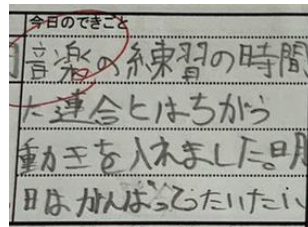 今日のできごと
音楽の練習の時間
に連合とはちがう
動王を入れました。明
日はかんばってたいたい